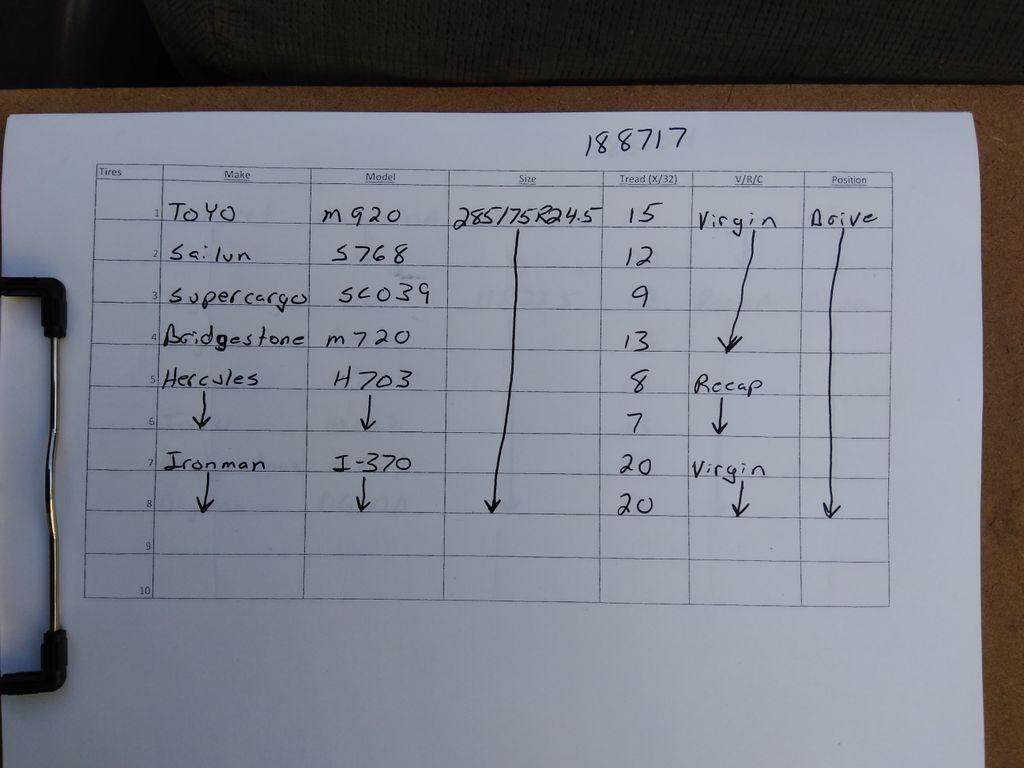 188717
Tires Make Model Size Tread (X/32) V/R/C Position
1 ToYO m920 285/75R24.5 15 Virgin Drive
2 Sailun S768 12
3 Supercargo SC039 9
4 Bridgestone m720 13
5 Hercules H703 8 Recap
6 7
7 Ironman I-370 20 Virgin
8 20
9
10